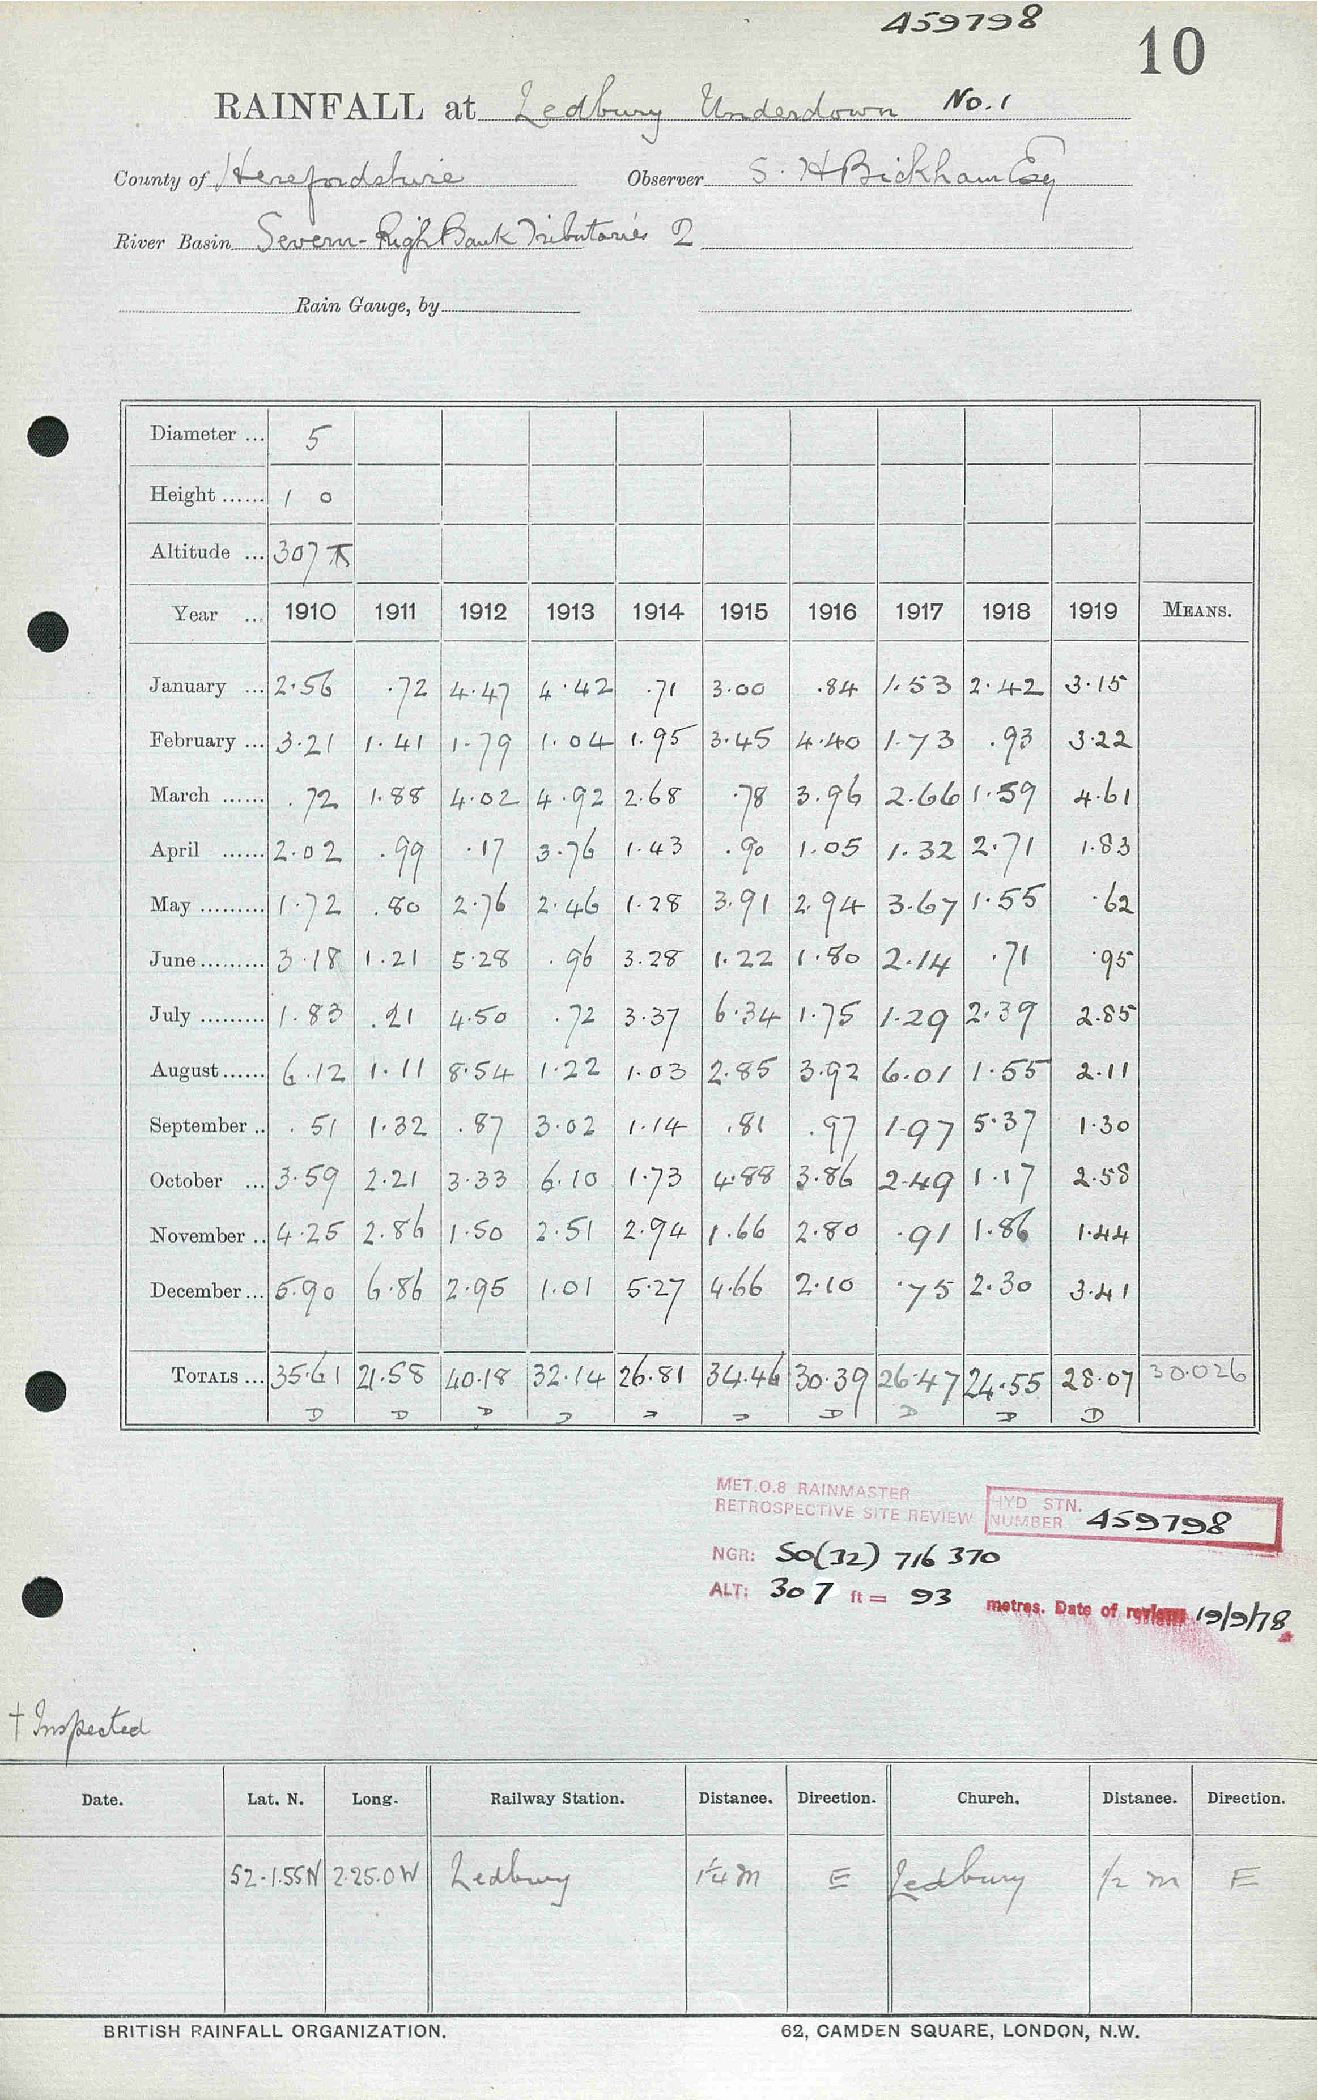 459798
10
RAINFALL at Ledbury Underdown No. 1
County of Herefordshire Observer S. H Bickham Esq
River Basin Severn - Righ Bank Tributaries 2
Rain Gauge, by
Diameter ... 5
Height ...... 1 0
Altitude ... 307
Year ... 1910 1911 1912 1913 1914 1915 1916 1917 1918 1919 MEANS.
January ... 2.56 .72 4.47 4.42 .71 3.00 .84 1.53 2.42 3.15
February ... 3.21 1.41 1.79 1.04 1.95 3.45 4.40 1.73 .93 3.22
March ...... .72 1.88 4.02 4.92 2.68 .78 3.96 2.66 1.59 4.61
April ...... 2.02 .99 .17 3.76 1.43 .90 1.05 1.32 2.71 1.83
May ......... 1.72 .80 2.76 2.46 1.28 3.91 2.94 3.67 1.55 .62
June ......... 3.18 1.21 5.28 .96 3.28 1.22 1.80 2.14 .71 .95
July ......... 1.83 .21 4.50 .72 3.37 6.34 1.75 1.29 2.39 2.85
August ...... 6.12 1.11 8.54 1.22 1.03 2.85 3.92 6.01 1.55 2.11
September .. .51 1.32 .87 3.02 1.14 .81 .97 1.97 5.37 1.30
October ... 3.59 2.21 3.33 6.10 1.73 4.88 3.86 2.49 1.17 2.58
November .. 4.25 2.86 1.50 2.51 2.94 1.66 2.80 .91 1.86 1.44
December ... 5.90 6.86 2.95 1.01 5.27 4.66 2.10 .75 2.30 3.41
TOTALS ... 35.61 21.58 40.18 32.14 26.81 34.46 30.39 26.47 24.55 28.07 30.026
D D D D D D D D D D
MET.O.8 RAINMASTER
RETROSPECTIVE SITE REVIEW
HYD STN. NUMBER 459798
NGR: SO(32) 716 370
ALT: 307 ft = 93 metres. Date of review 19/9/78
† Inspected
Date. Lat. N. Long. Railway Station. Distance. Direction. Church. Distance. Direction.
52.1.55N 2.25.0W Ledbury 1¼ m E Ledbury 1/2 m E
BRITISH RAINFALL ORGANIZATION. 62, CAMDEN SQUARE, LONDON, N.W.